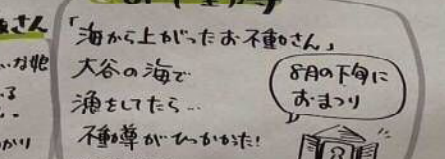 さん
「海から上がったお不動さん」
大谷の海で
漁をしてたら…
不動尊がひっかかった!
8月の下旬に
おまつり